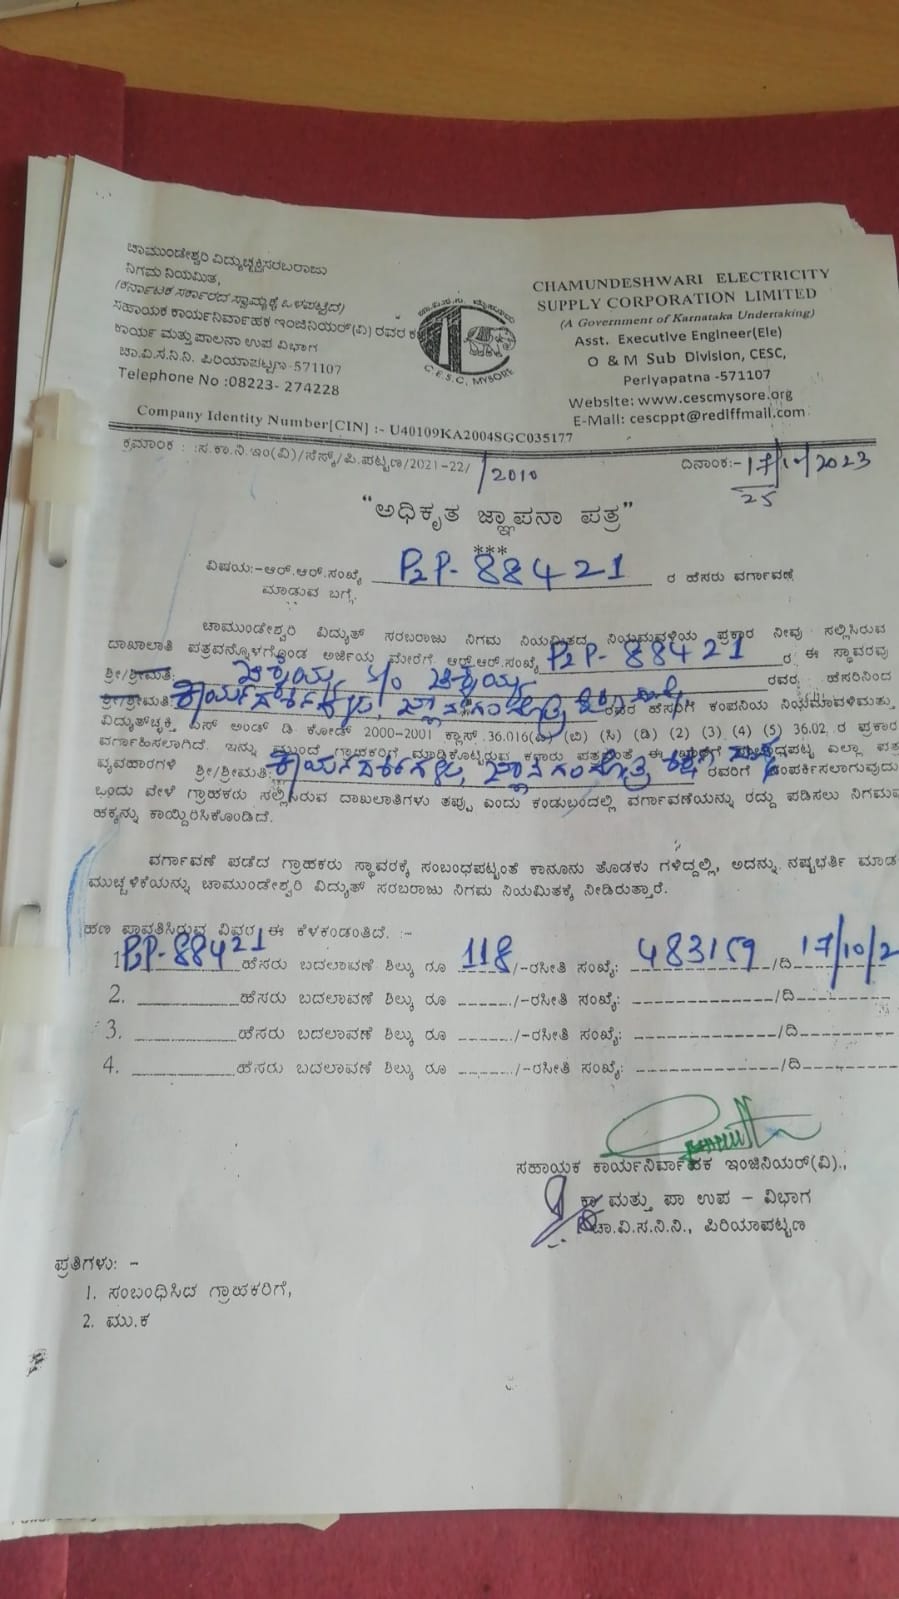 ಚಾಮುಂಡೇಶ್ವರಿ ವಿದ್ಯುಚ್ಛಕ್ತಿಸರಬರಾಜು
ನಿಗಮ ನಿಯಮಿತ,
(ಕರ್ನಾಟಕ ಸರ್ಕಾರದ ಸ್ವಾಮ್ಯಕ್ಕೆ ಒಳಪಟ್ಟಿದೆ)
ಸಹಾಯಕ ಕಾರ್ಯನಿರ್ವಾಹಕ ಇಂಜಿನಿಯರ್(ವಿ) ರವರ
ಕಾರ್ಯ ಮತ್ತು ಪಾಲನಾ ಉಪ ವಿಭಾಗ
ಚಾ.ವಿ.ಸ.ನಿ.ನಿ. ಪಿರಿಯಾಪಟ್ಟಣ-571107
Telephone No :08223- 274228
C.E.S.C, MYSORE
CHAMUNDESHWARI ELECTRICITY
SUPPLY CORPORATION LIMITED
(A Government of Karnataka Undertaking)
Asst. Executive Engineer(Ele)
O & M Sub Division, CESC,
Periyapatna -571107
Website: www.cescmysore.org
E-Mail: cescppt@rediffmail.com
Company Identity Number[CIN] :- U40109KA2004SGC035177
ಕ್ರಮಾಂಕ : :ಸ.ಕಾ.ನಿ.ಇಂ(ವಿ)/ಸೆಸ್ಕ್/ಪಿ.ಪಟ್ಟಣ/2021-22/ /2010 ದಿನಾಂಕ:-17/10/2023
25
"ಅಧಿಕೃತ ಜ್ಞಾಪನಾ ಪತ್ರ"
***
ವಿಷಯ:-ಆರ್.ಆರ್.ಸಂಖ್ಯೆ P2P-88421 ರ ಹೆಸರು ವರ್ಗಾವಣೆ
ಮಾಡುವ ಬಗ್ಗೆ.
ಚಾಮುಂಡೇಶ್ವರಿ ವಿದ್ಯುತ್ ಸರಬರಾಜು ನಿಗಮ ನಿಯಮಿತದ ನಿಯಮಾವಳಿಯ ಪ್ರಕಾರ ನೀವು ಸಲ್ಲಿಸಿರುವ
ದಾಖಾಲಾತಿ ಪತ್ರವನ್ನೊಳಗೊಂಡ ಅರ್ಜಿಯ ಮೇರೆಗೆ ಆರ್.ಆರ್.ಸಂಖ್ಯೆ P2P-88421 ರ ಈ ಸ್ಥಾವರವು
ಶ್ರೀ/ಶ್ರೀಮತಿ: S/o ರವರ ಹೆಸರಿನಿಂದ
ಶ್ರೀ/ಶ್ರೀಮತಿ: ರವರ ಹೆಸರಿಗೆ ಕಂಪನಿಯ ನಿಯಮಾವಳಿಮತ್ತು
ವಿದ್ಯುತ್‌ಚ್ಛಕ್ತಿ ಎಸ್ ಅಂಡ್ ಡಿ ಕೋಡ್ 2000-2001 ಕ್ಲಾಸ್ 36.016(ಎ) (ಬಿ) (ಸಿ) (ಡಿ) (2) (3) (4) (5) 36.02 ರ ಪ್ರಕಾರ
ವರ್ಗಾಹಿಸಲಾಗಿದೆ. ಇನ್ನು ಮುಂದೆ ಗ್ರಾಹಕರಿಗೆ ಮಾಡಿಕೊಟ್ಟಿರುವ ಕರಾರು ಪತ್ರದಂತೆ ಈ ಎಲ್ಲಾ ಪತ್ರ
ವ್ಯವಹಾರಗಳಿ ಶ್ರೀ/ಶ್ರೀಮತಿ: ರವರಿಗೆ ಸಂಪರ್ಕಿಸಲಾಗುವುದು
ಒಂದು ವೇಳೆ ಗ್ರಾಹಕರು ಸಲ್ಲಿಸಿರುವ ದಾಖಲಾತಿಗಳು ತಪ್ಪು ಎಂದು ಕಂಡುಬಂದಲ್ಲಿ ವರ್ಗಾವಣೆಯನ್ನು ರದ್ದು ಪಡಿಸಲು ನಿಗಮವ
ಹಕ್ಕನ್ನು ಕಾಯ್ದಿರಿಸಿಕೊಂಡಿದೆ.
ವರ್ಗಾವಣೆ ಪಡೆದ ಗ್ರಾಹಕರು ಸ್ಥಾವರಕ್ಕೆ ಸಂಬಂಧಪಟ್ಟಂತೆ ಕಾನೂನು ತೊಡಕು ಗಳಿದ್ದಲ್ಲಿ, ಅದನ್ನು ನಷ್ಟಭರ್ತಿ ಮಾಡ
ಮುಚ್ಚಳಿಕೆಯನ್ನು ಚಾಮುಂಡೇಶ್ವರಿ ವಿದ್ಯುತ್ ಸರಬರಾಜು ನಿಗಮ ನಿಯಮಿತಕ್ಕೆ ನೀಡಿರುತ್ತಾರೆ.
ಹಣ ಪಾವತಿಸಿರುವ ವಿವರ ಈ ಕೆಳಕಂಡಂತಿದೆ. :-
1. P2P-88421 ಹೆಸರು ಬದಲಾವಣೆ ಶುಲ್ಕು ರೂ 118/-ರಸೀತಿ ಸಂಖ್ಯೆ: 483159 /ದಿ 17/10/2
2. __________ಹೆಸರು ಬದಲಾವಣೆ ಶುಲ್ಕು ರೂ ------/-ರಸೀತಿ ಸಂಖ್ಯೆ: --------------/ದಿ----------
3. __________ಹೆಸರು ಬದಲಾವಣೆ ಶುಲ್ಕು ರೂ ------/-ರಸೀತಿ ಸಂಖ್ಯೆ: --------------/ದಿ----------
4. __________ಹೆಸರು ಬದಲಾವಣೆ ಶುಲ್ಕು ರೂ ------/-ರಸೀತಿ ಸಂಖ್ಯೆ: --------------/ದಿ----------
ಸಹಾಯಕ ಕಾರ್ಯನಿರ್ವಾಹಕ ಇಂಜಿನಿಯರ್(ವಿ).,
ಕಾ ಮತ್ತು ಪಾ ಉಪ – ವಿಭಾಗ
ಚಾ.ವಿ.ಸ.ನಿ.ನಿ., ಪಿರಿಯಾಪಟ್ಟಣ
ಪ್ರತಿಗಳು: –
1. ಸಂಬಂಧಿಸಿದ ಗ್ರಾಹಕರಿಗೆ,
2. ಮು.ಕ